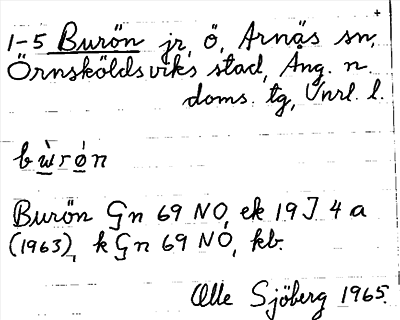 1-5 Burön jr, ö, Arnäs sn,
Örnsköldsviks stad, Ång. n.
doms. tg, Vnrl. l.
bẁrón
Burön Gn 69 NO, ek 19 J 4 a
(1963), k Gn 69 NÖ, kb.
Olle Sjöberg 1965.